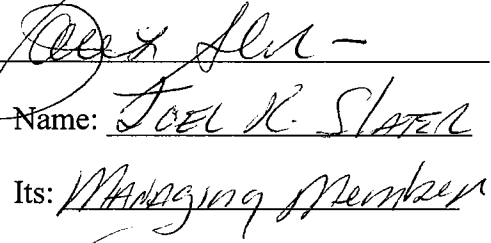 Name: JOEL R. SLATER
Its: Managing Member